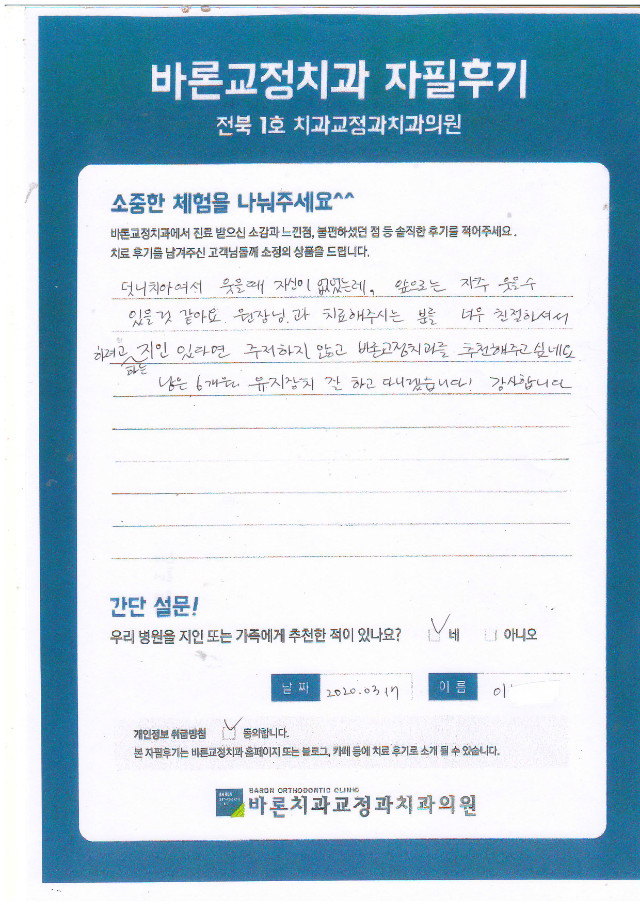 바른교정치과 자필후기
전북 1호 치과교정과치과의원
소중한 체험을 나눠주세요^^
바른교정치과에서 진료 받으신 소감과 느낀점, 불편하셨던 점 등 솔직한 후기를 적어주세요.
치료 후기를 남겨주신 고객님들께 소정의 상품을 드립니다.
덧니치아여서 웃을때 자신이 없었는데, 앞으로는 자주 웃을수
있을것 같아요. 원장님과 치료해주시는 분들 너무 친절하셔서
하려고 하는 지인 있다면 주저하지 않고 바론교정치과를 추천해주고싶네요
남은 6개월 유지장치 잘 하고 다니겠습니다! 감사합니다
간단 설문!
우리 병원을 지인 또는 가족에게 추천한 적이 있나요? 네 아니오
날짜 2020.03.17 이름 이
개인정보 취급방침 동의합니다.
본 자필후기는 바론교정치과 홈페이지 또는 블로그, 카페 등에 치료 후기로 소개 될 수 있습니다.
BARON ORTHODONTIC CLINIC
바론치과교정과치과의원